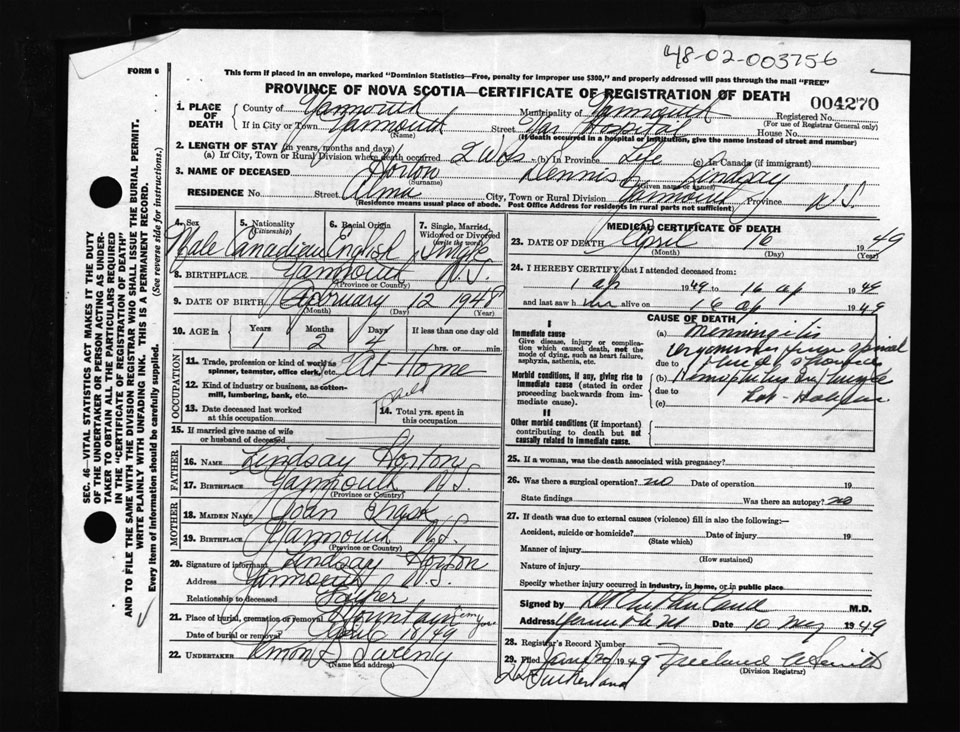 48-02-003756
FORM 6
This form if placed in an envelope, marked "Dominion Statistics—Free, penalty for improper use $300," and properly addressed will pass through the mail "FREE"
PROVINCE OF NOVA SCOTIA—CERTIFICATE OF REGISTRATION OF DEATH
004270
SEC. 46—VITAL STATISTICS ACT MAKES IT THE DUTY
OF THE UNDERTAKER OR PERSON ACTING AS UNDER-
TAKER TO OBTAIN ALL THE PARTICULARS REQUIRED
IN THE "CERTIFICATE OF REGISTRATION OF DEATH"
AND TO FILE THE SAME WITH THE DIVISION REGISTRAR WHO SHALL ISSUE THE BURIAL PERMIT.
WRITE PLAINLY WITH UNFADING INK. THIS IS A PERMANENT RECORD.
Every item of information should be carefully supplied. (See reverse side for instructions.)
1. PLACE OF DEATH
County of Yarmouth Municipality of Yarmouth Registered No.
(For use of Registrar General only)
If in City or Town Yarmouth Street Yar Hospital House No.
(Name) (If death occurred in a hospital or institution, give the name instead of street and number)
2. LENGTH OF STAY (in years, months and days)
(a) In City, Town or Rural Division where death occurred 2 Wks (b) In Province Life (c) In Canada (if immigrant)
3. NAME OF DECEASED Horton Dennis Lindsay
(Surname) (Given name or names)
RESIDENCE No. Street Alma City, Town or Rural Division Yarmouth Province N.S.
(Residence means usual place of abode. Post Office Address for residents in rural parts not sufficient)
4. Sex Male
5. Nationality (Citizenship) Canadian
6. Racial Origin English
7. Single, Married, Widowed or Divorced (write the word) Single
8. BIRTHPLACE Yarmouth N.S.
(Province or Country)
9. DATE OF BIRTH February 12 1948
(Month) (Day) (Year)
10. AGE in Years Months Days If less than one day old
1 2 4 hrs. or min.
OCCUPATION
11. Trade, profession or kind of work as spinner, teamster, office clerk, etc. At Home
12. Kind of industry or business, as cotton-mill, lumbering, bank, etc. Child
13. Date deceased last worked at this occupation
14. Total yrs. spent in this occupation
15. If married give name of wife or husband of deceased
FATHER
16. NAME Lindsay Horton
17. BIRTHPLACE Yarmouth N.S.
(Province or Country)
MOTHER
18. MAIDEN NAME Joan
19. BIRTHPLACE Yarmouth N.S.
(Province or Country)
20. Signature of informant Lindsay Horton
Address Yarmouth N.S.
Relationship to deceased Father
21. Place of burial, cremation or removal Mountain Cemy
Date of burial or removal April 18/49
22. UNDERTAKER Simon D Sweeny
(Name and address)
MEDICAL CERTIFICATE OF DEATH
23. DATE OF DEATH April 16 1949
(Month) (Day) (Year)
24. I HEREBY CERTIFY that I attended deceased from:
1 ap 1949 to 16 ap 1949
and last saw him alive on 16 ap 1949
CAUSE OF DEATH
I
Immediate cause
Give disease, injury or complication which caused death, not the mode of dying, such as heart failure, asphyxia, asthenia, etc.
(a) Menningitis
due to
Morbid conditions, if any, giving rise to immediate cause (stated in order proceeding backwards from immediate cause).
(b)
due to
(c)
II
Other morbid conditions (if important) contributing to death but not causally related to immediate cause.
25. If a woman, was the death associated with pregnancy?
26. Was there a surgical operation? no Date of operation 19
State findings Was there an autopsy? no
27. If death was due to external causes (violence) fill in also the following:
Accident, suicide or homicide? Date of injury 19
(State which)
Manner of injury
(How sustained)
Nature of injury
Specify whether injury occurred in industry, in home, or in public place
Signed by M.D.
Address Date 10 May 1949
28. Registrar's Record Number
29. Filed 1949 Smith
(Division Registrar)
Sutherland